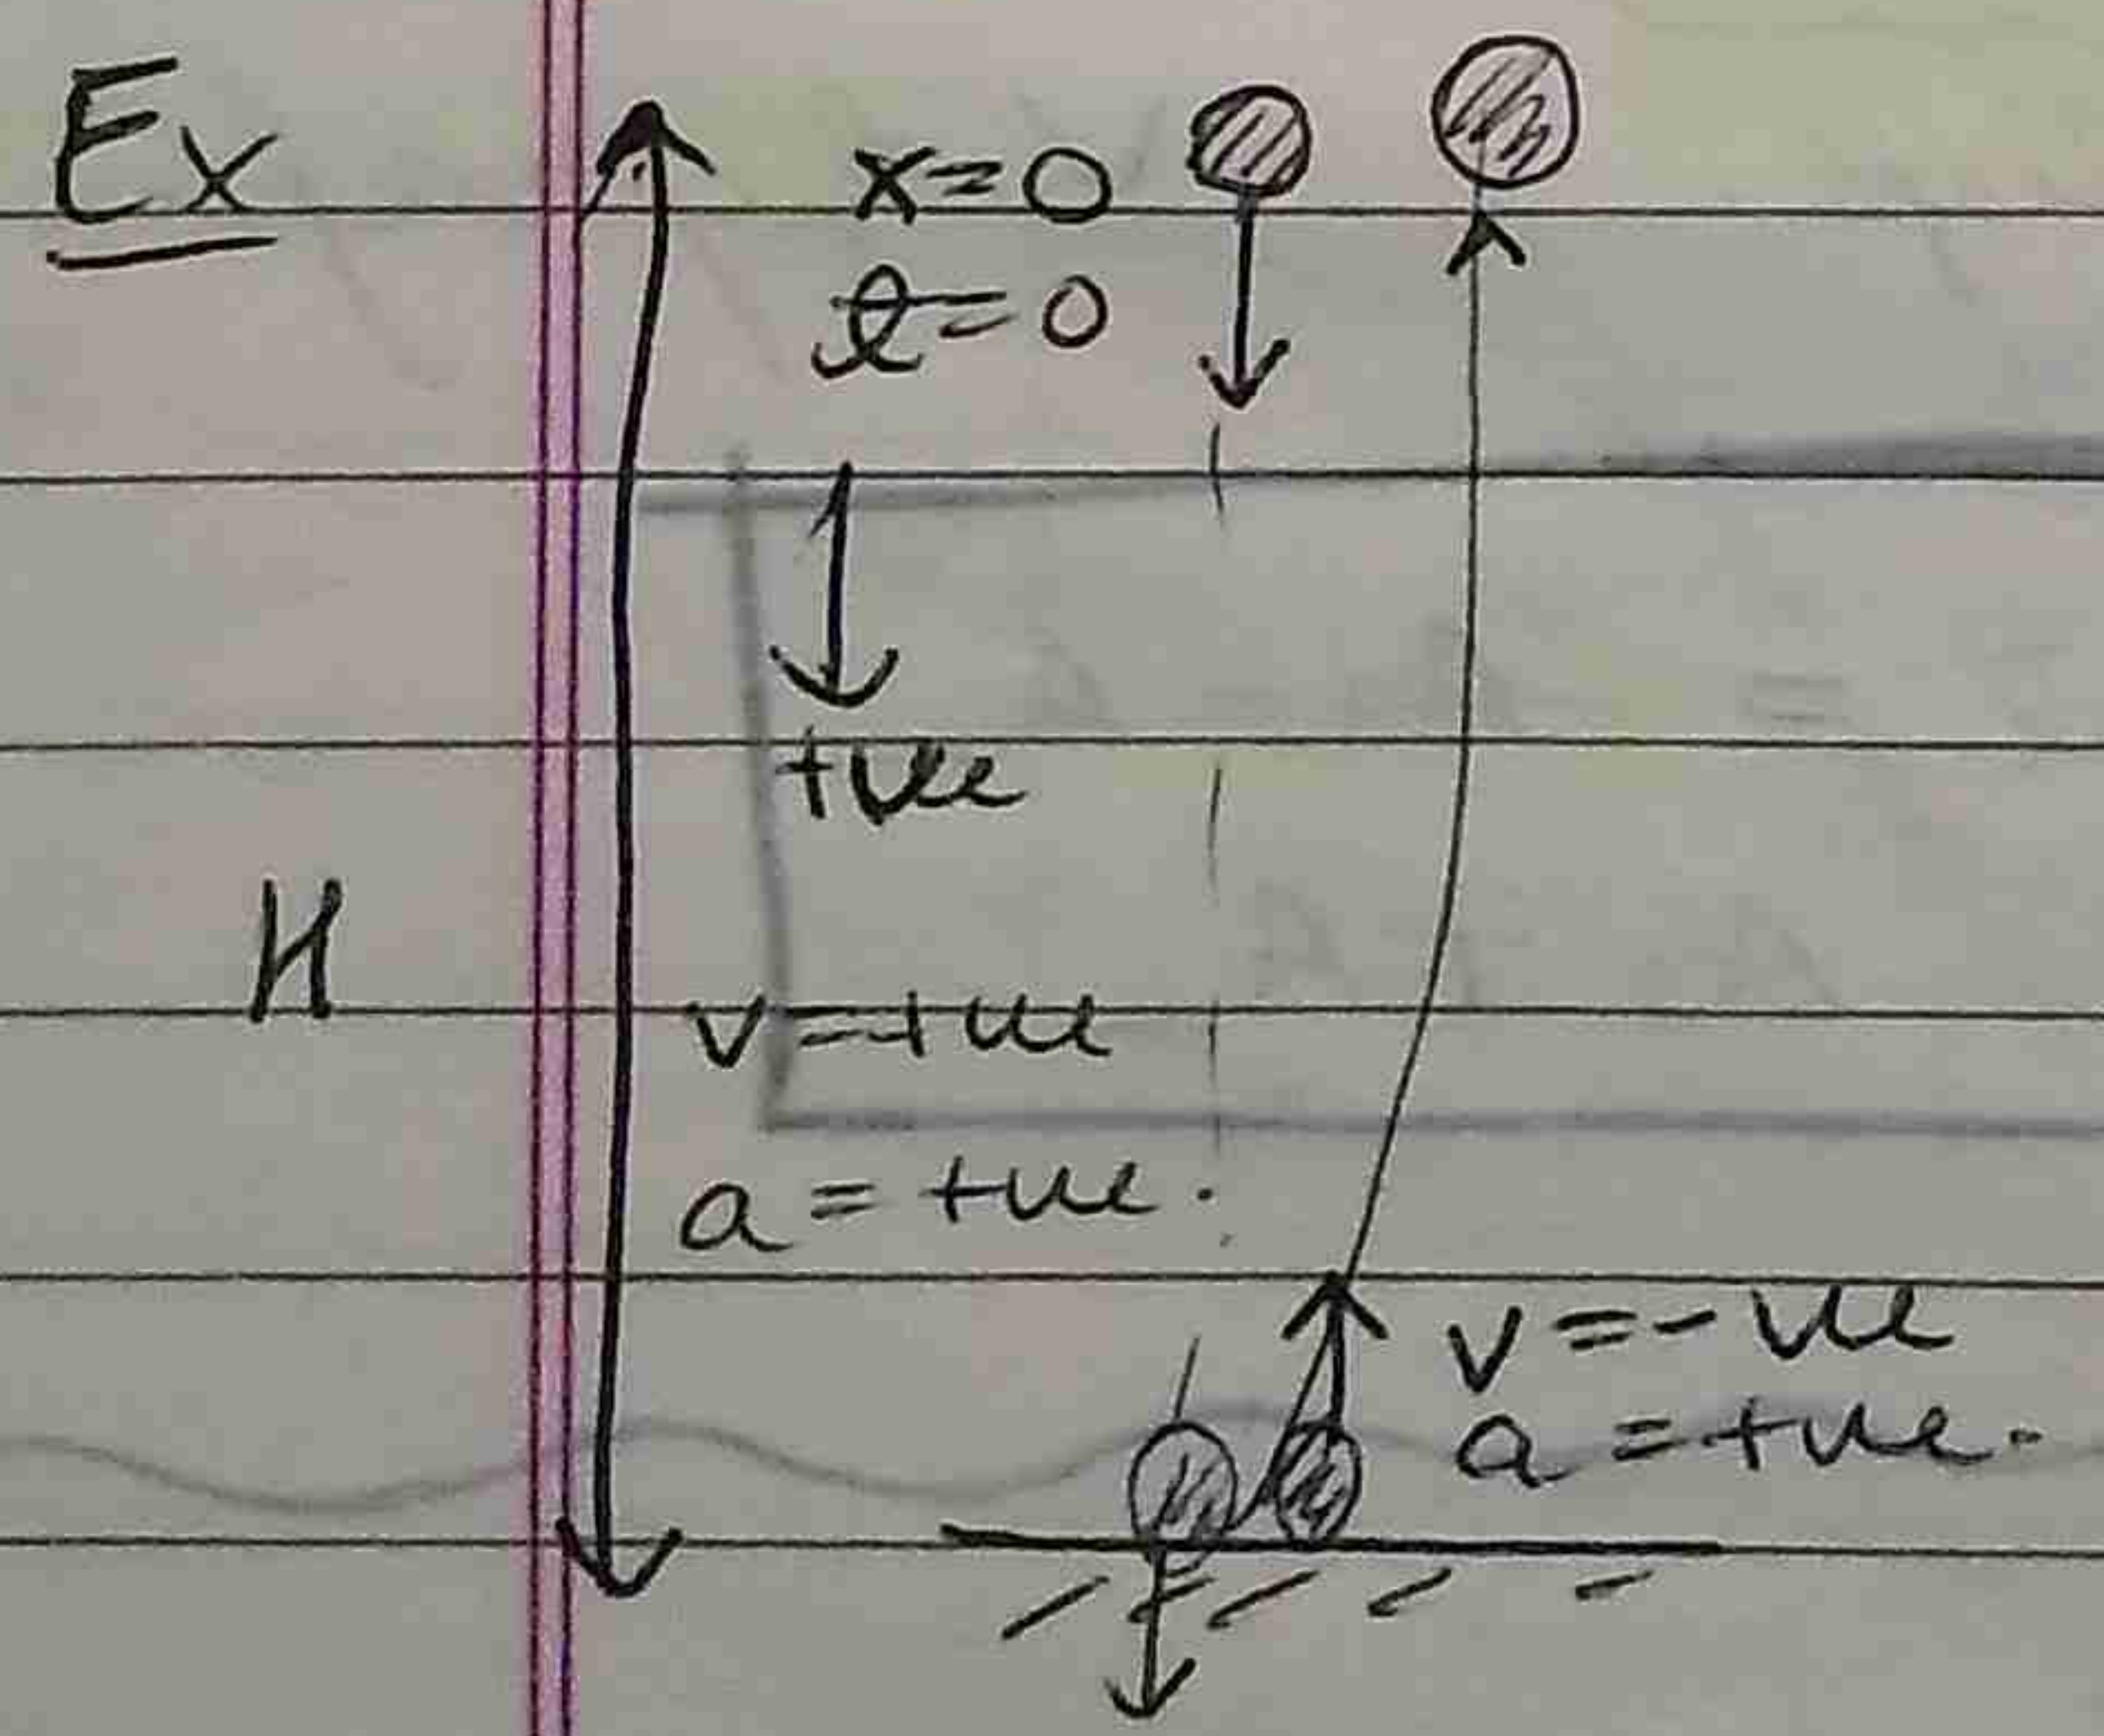 Ex
x=0
t=0
+ve
H
v=+ve
a=+ve.
v=-ve
a=+ve.